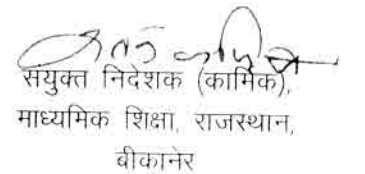 सयुक्त निदेशक (कार्मिक),
माध्यमिक शिक्षा, राजस्थान,
बीकानेर